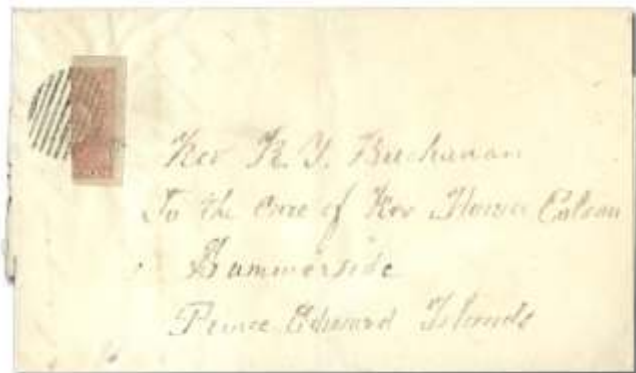 Rev R. Y. Buchanan
To the Care of Rev
Summerside
Prince Edward Islands